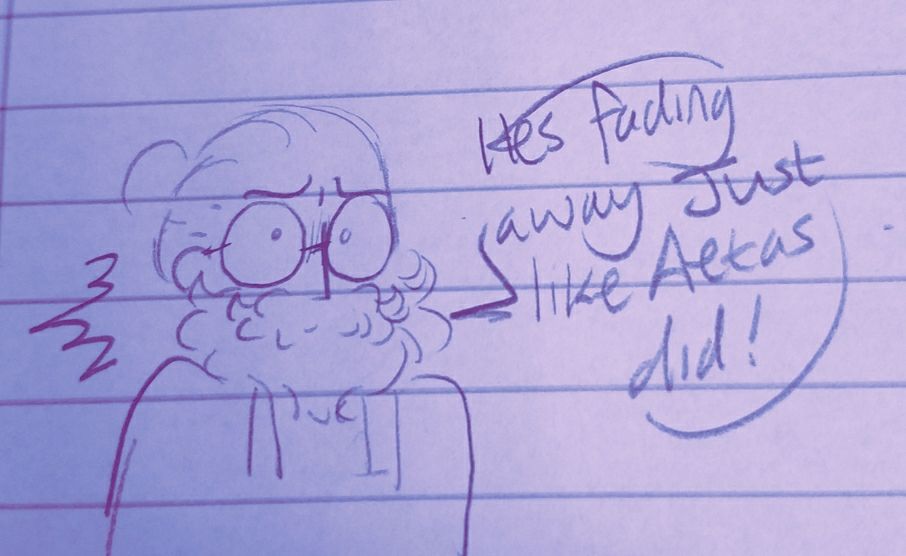 Hes fading
away Just
like Aetas
did!